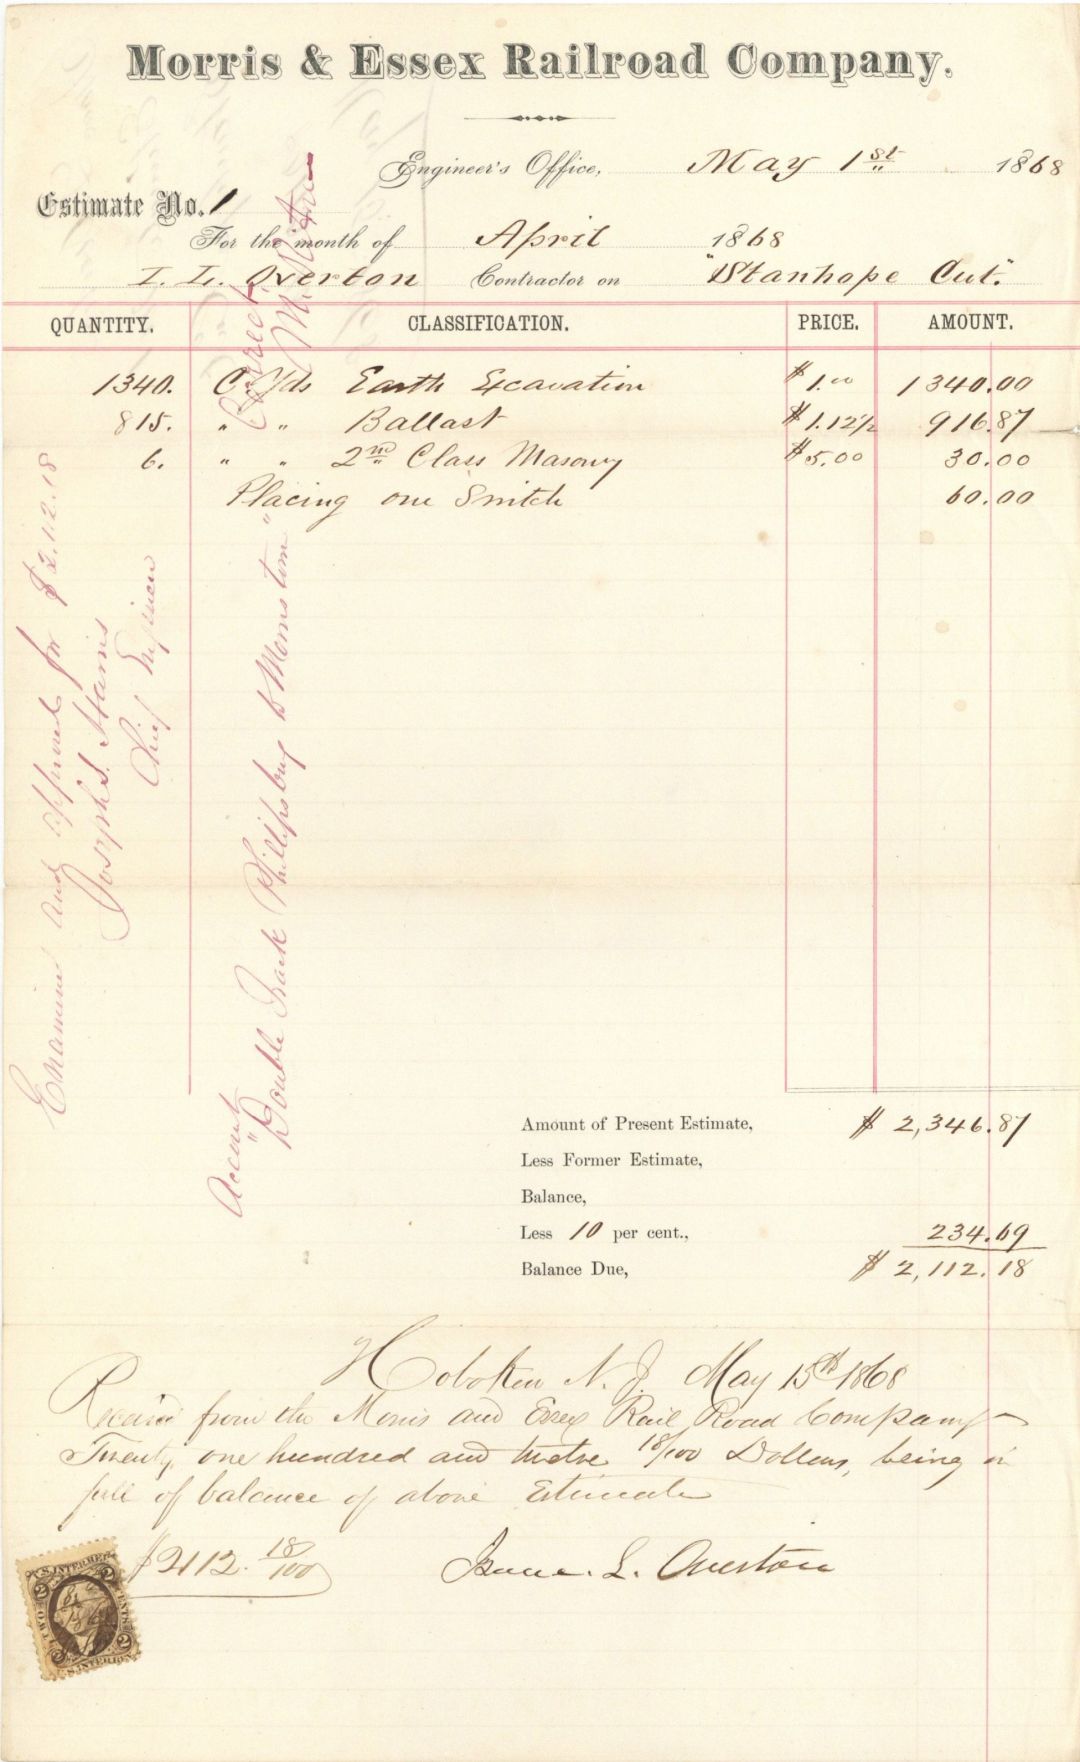 Morris & Essex Railroad Company.
Engineer's Office, May 1st 1868
Estimate No. 1
For the month of April 1868
I. L. Overton Contractor on "Stanhope Cut."
QUANTITY. CLASSIFICATION. PRICE. AMOUNT.
1340. C. Yds Earth Excavation $1.00 1340.00
815. " " Ballast $1.12 1/2 916.87
6. " " 2nd Class Masonry $5.00 30.00
Placing one Switch 60.00
Correct
Examined and approved for $2.112.18
Chief Engineer
Account
"Double Track Phillipsburg to Morristown"
Amount of Present Estimate, $ 2,346.87
Less Former Estimate,
Balance,
Less 10 per cent., 234.69
Balance Due, $ 2,112.18
Hoboken N. J. May 15th 1868
Received from the Morris and Essex Rail Road Company
Twenty one hundred and twelve 18/100 Dollars, being in
full of balance of above Estimate
$2112. 18/100
Isaac L. Overton
U.S. INTER. REV.
2 2
TWO CENTS
2 2